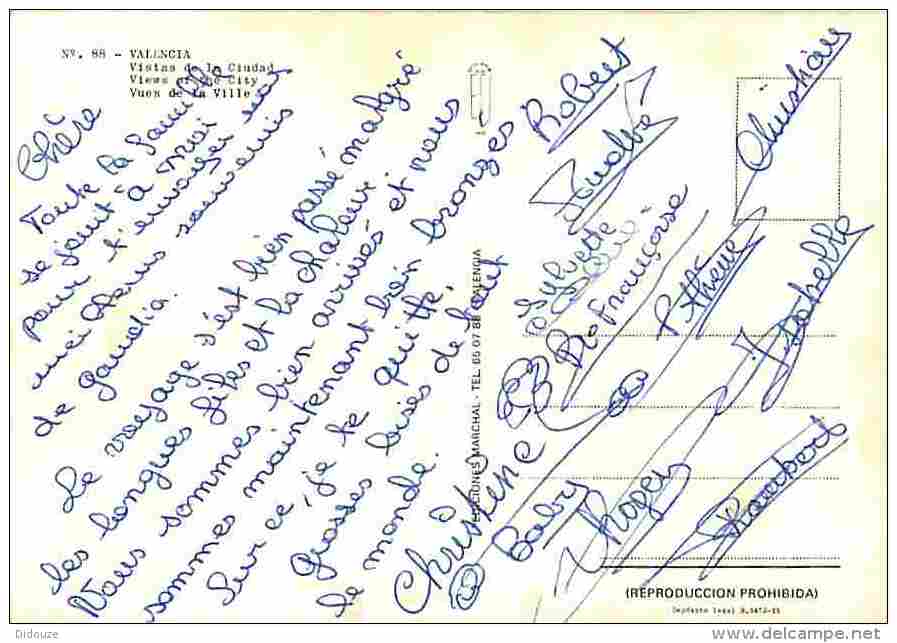 Nº. 88 - VALENCIA
Vistas de la Ciudad
Views of the City
Vues de la Ville
Chère
Toute la famille
se joint à moi
pour t'envoyer nos
meilleurs souvenirs
de Gandia.
Le voyage s'est bien passé malgré
les longues files et la chaleur.
Nous sommes bien arrivés et nous
sommes maintenant bien bronzés
Sur ce, je te quitte.
Grosses bises de tout
le monde.
Christine
EDICIONES MARCHAL - TEL. 65 07 88 - VALENCIA
Robert
Sylvette
Françoise
Christian
Isabelle
Gaby
Roger
(REPRODUCCION PROHIBIDA)
Depósito legal
Didouze
delcampe.net